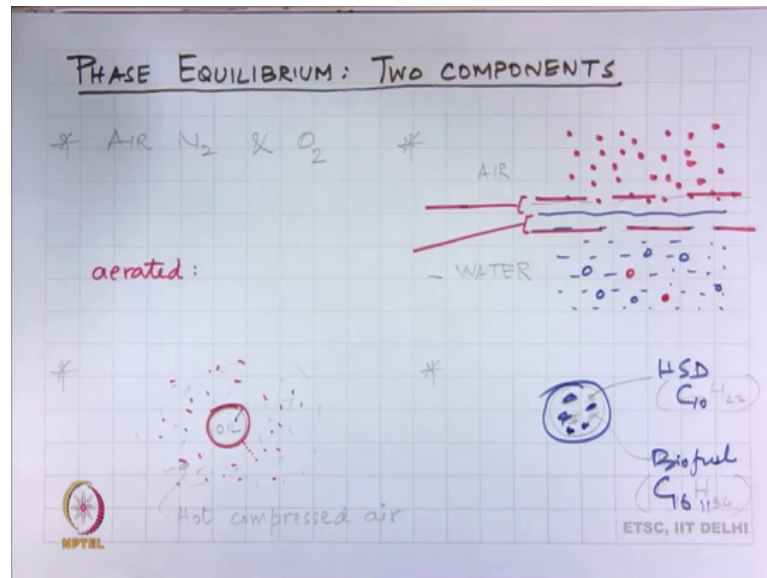 PHASE EQUILIBRIUM: TWO COMPONENTS
* AIR N₂ & O₂
*
AIR
aerated:
- WATER
*
OIL
Hot compressed air
*
HSD
(C₁₀H₂₂)
Biofuel
NPTEL
ETSC, IIT DELHI